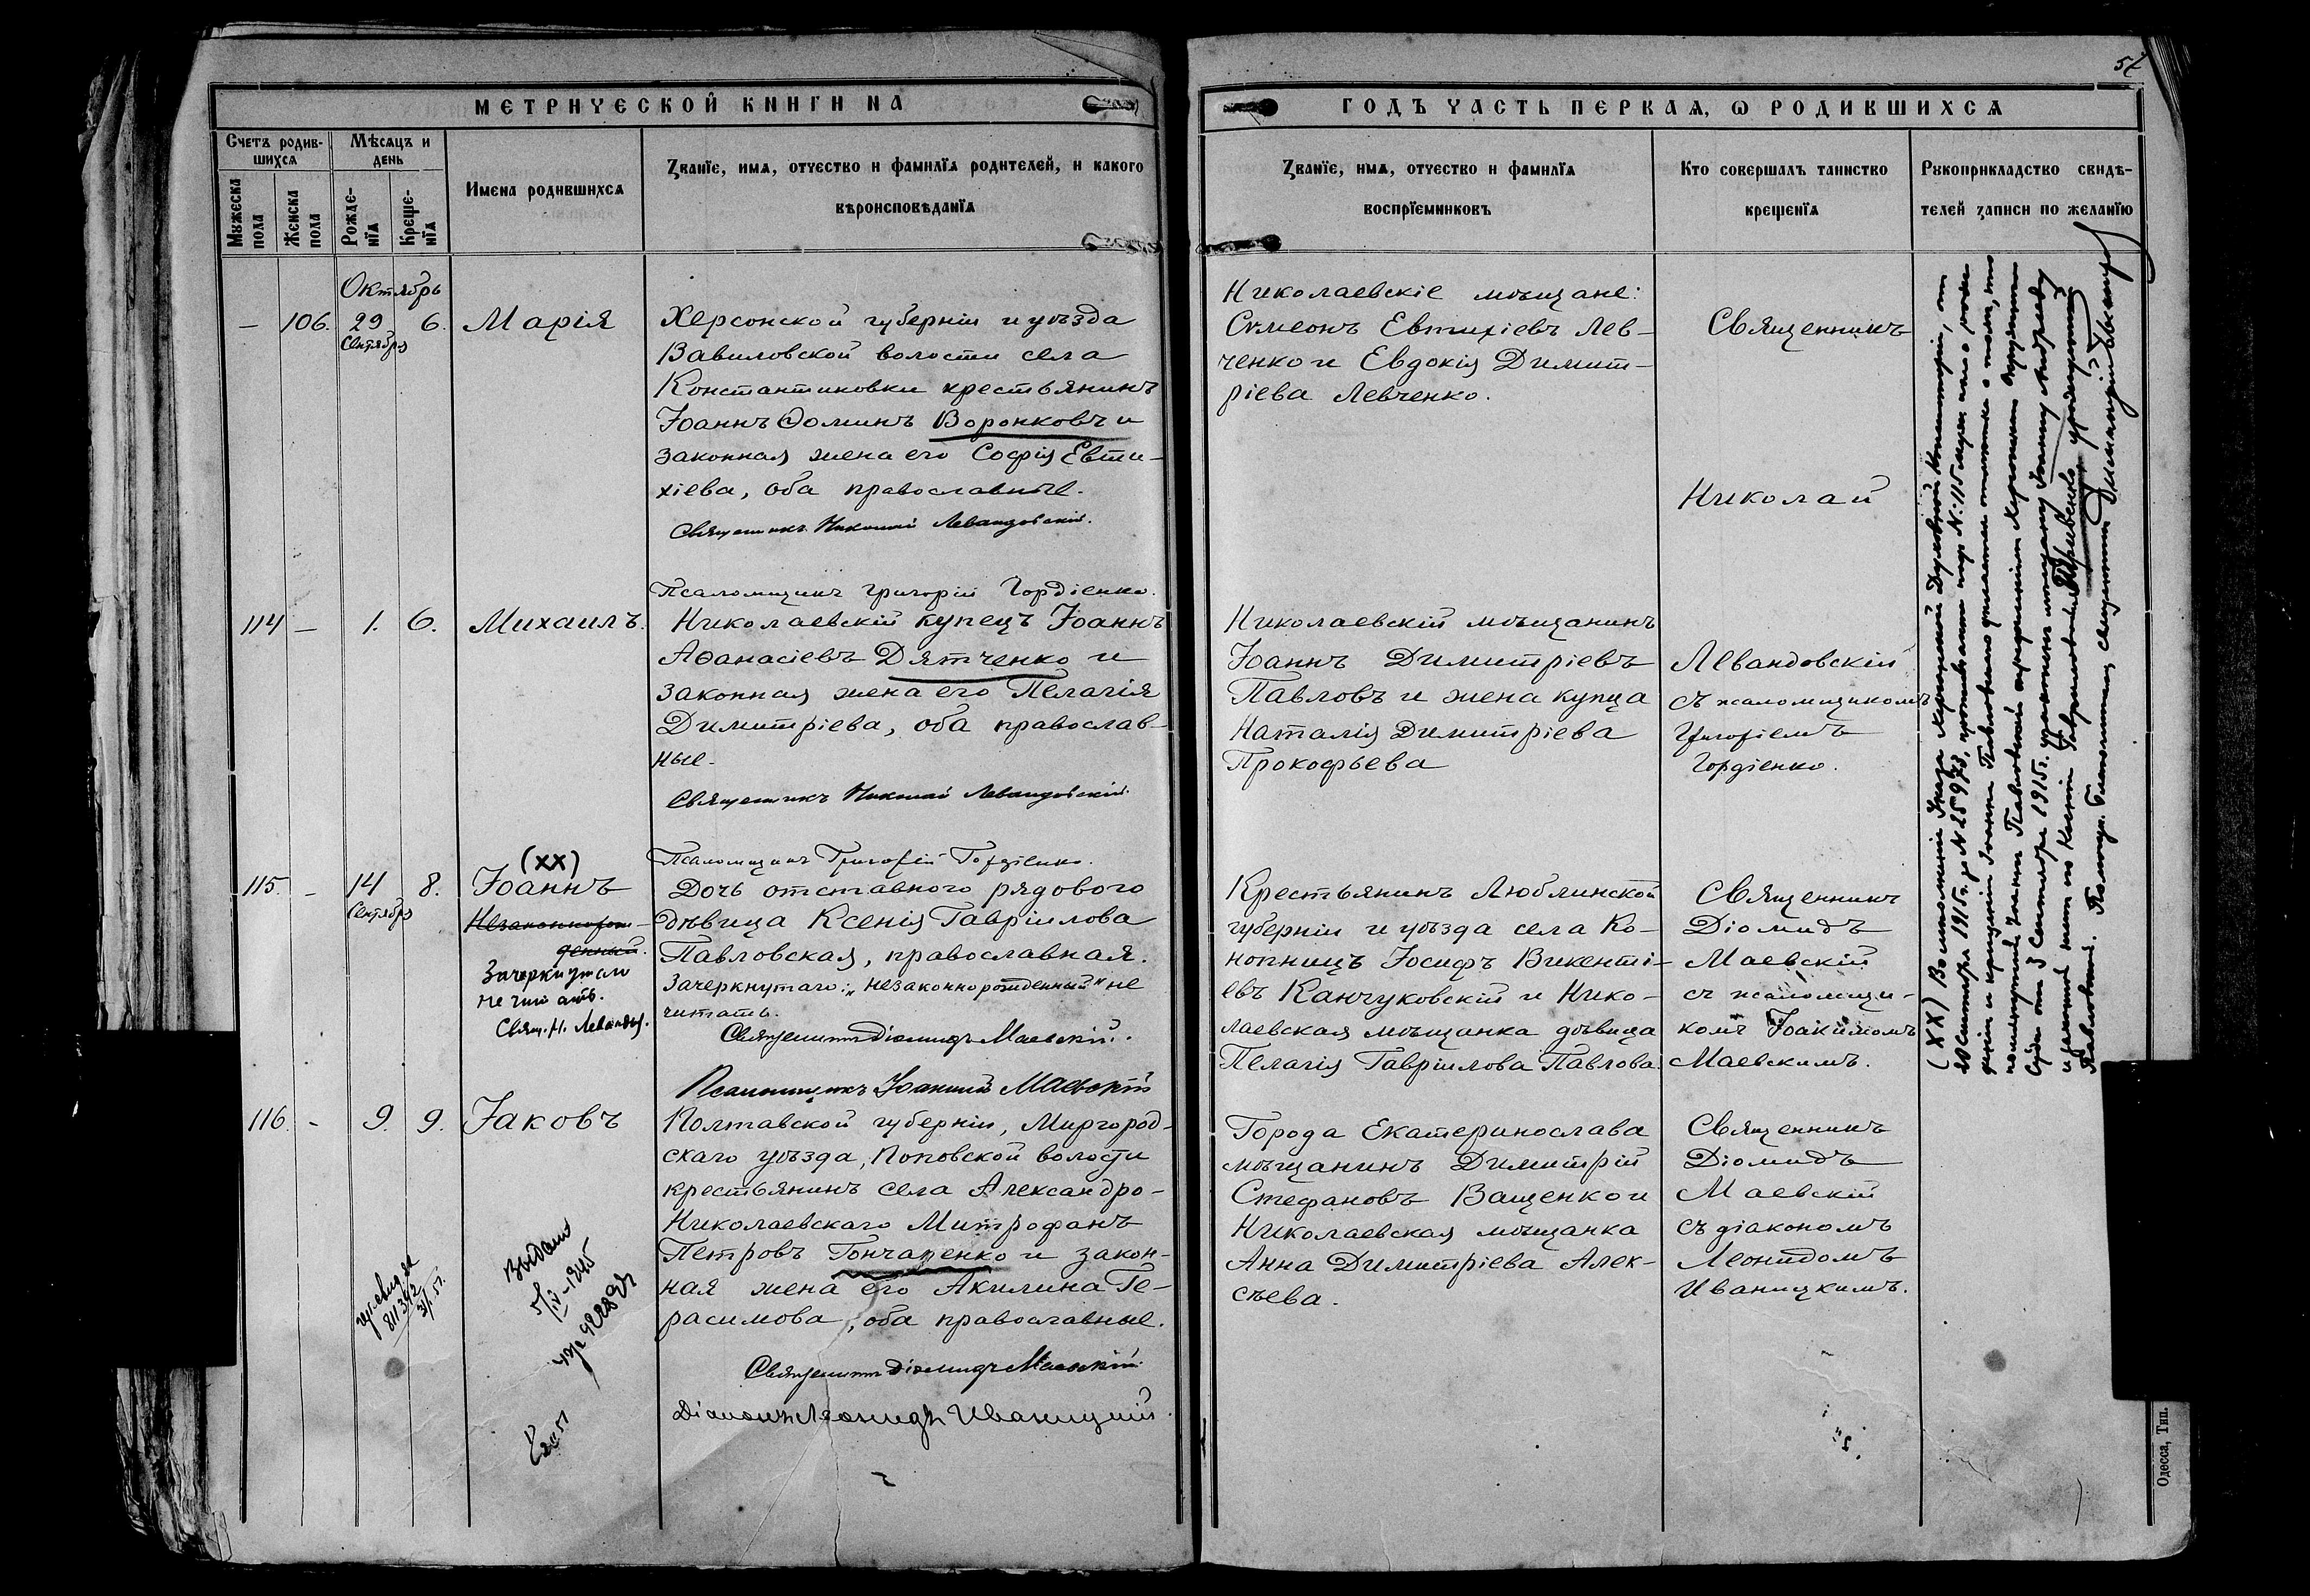 57
МЕТРИЧЕСКОЙ КНИГИ НА
ГОДЪ ЧАСТЬ ПЕРВАЯ, Ѡ РОДИВШИХСЯ
Счетъ родив-
шихся
Мѣсяцъ и
день
Мужеска
пола
Женска
пола
Рожде-
нїя
Креще-
нїя
Имена родившихся
Званїе, имя, отчество и фамилїя родителей, и какого
вѣроисповѣданїя
Званїе, имя, отчество и фамилїя
воспрїемниковъ
Кто совершалъ таинство
крещенїя
Рукоприкладство свидѣ-
телей записи по желанїю
Октябрь
— 106. 29 6. Марія
Сентября
Херсонской губерніи и уѣзда
Вавиловской волости села
Константиновки крестьянинъ
Іоаннъ Ѳоминъ Воронковъ и
законная жена его Софія Евти-
хіева, оба православные.
Священникъ Николай Левандовскій.
Псаломщикъ Григорій Гордіенко.
Николаевскіе мѣщане:
Сѵмеонъ Евтихіевъ Лев-
ченко и Евдокія Димит-
ріева Левченко.
Священникъ
Николай
114 — 1. 6. Михаилъ.
Николаевскій купецъ Іоаннъ
Аѳанасіевъ Дятченко и
законная жена его Пелагія
Димитріева, оба православ-
ные.
Священникъ Николай Левандовскій.
Псаломщикъ Григорій Гордіенко.
Николаевскій мѣщанинъ
Іоаннъ Димитріевъ
Павловъ и жена купца
Наталія Димитріева
Прокофьева
Левандовскій
съ псаломщикомъ
Григоріемъ
Гордіенко.
(XX)
115. - 14 8. Іоаннъ
Сентября
Незаконнорож-
денный.
Зачеркнутаго
не читать.
Свящ. Н. Левандов.
Дочь отставного рядового
дѣвица Ксенія Гавріилова
Павловская, православная.
Зачеркнутаго: „незаконнорожденный" не
читать.
Священникъ Діомидъ Маевскій.
Псаломщикъ Іоакимъ Маевскій
Крестьянинъ Люблинской
губерніи и уѣзда села Ко-
нопницъ Іосифъ Викенті-
евъ Канчуковскій и Нико-
лаевская мѣщанка дѣвица
Пелагія Гавріилова Павлова.
Священникъ
Діомидъ
Маевскій
съ псаломщи-
комъ Іоакимомъ
Маевскимъ.
116. - 9. 9. Іаковъ
Полтавской губерніи, Миргород-
скаго уѣзда, Поповской волости
крестьянинъ села Александро-
Николаевскаго Митрофанъ
Петровъ Гончаренко и закон-
ная жена его Акилина Ге-
расимова, оба православные.
Священникъ Діомидъ Маевскій.
Діаконъ Леонидъ Иваницкій.
Города Екатеринослава
мѣщанинъ Димитрій
Стефановъ Ващенко и
Николаевская мѣщанка
Анна Димитріева Алек-
сѣева.
Священникъ
Діомидъ
Маевскій
съ діакономъ
Леонидомъ
Иваницкимъ.
Выдано
5/IV-1945
(XX) Во исполненіе Указа Херсонской Духовной Консисторіи, отъ
1915 г. за № 25973,
Суда отъ 5 Сентября 1915 г.
Павловскій.
Одесса, Тип.